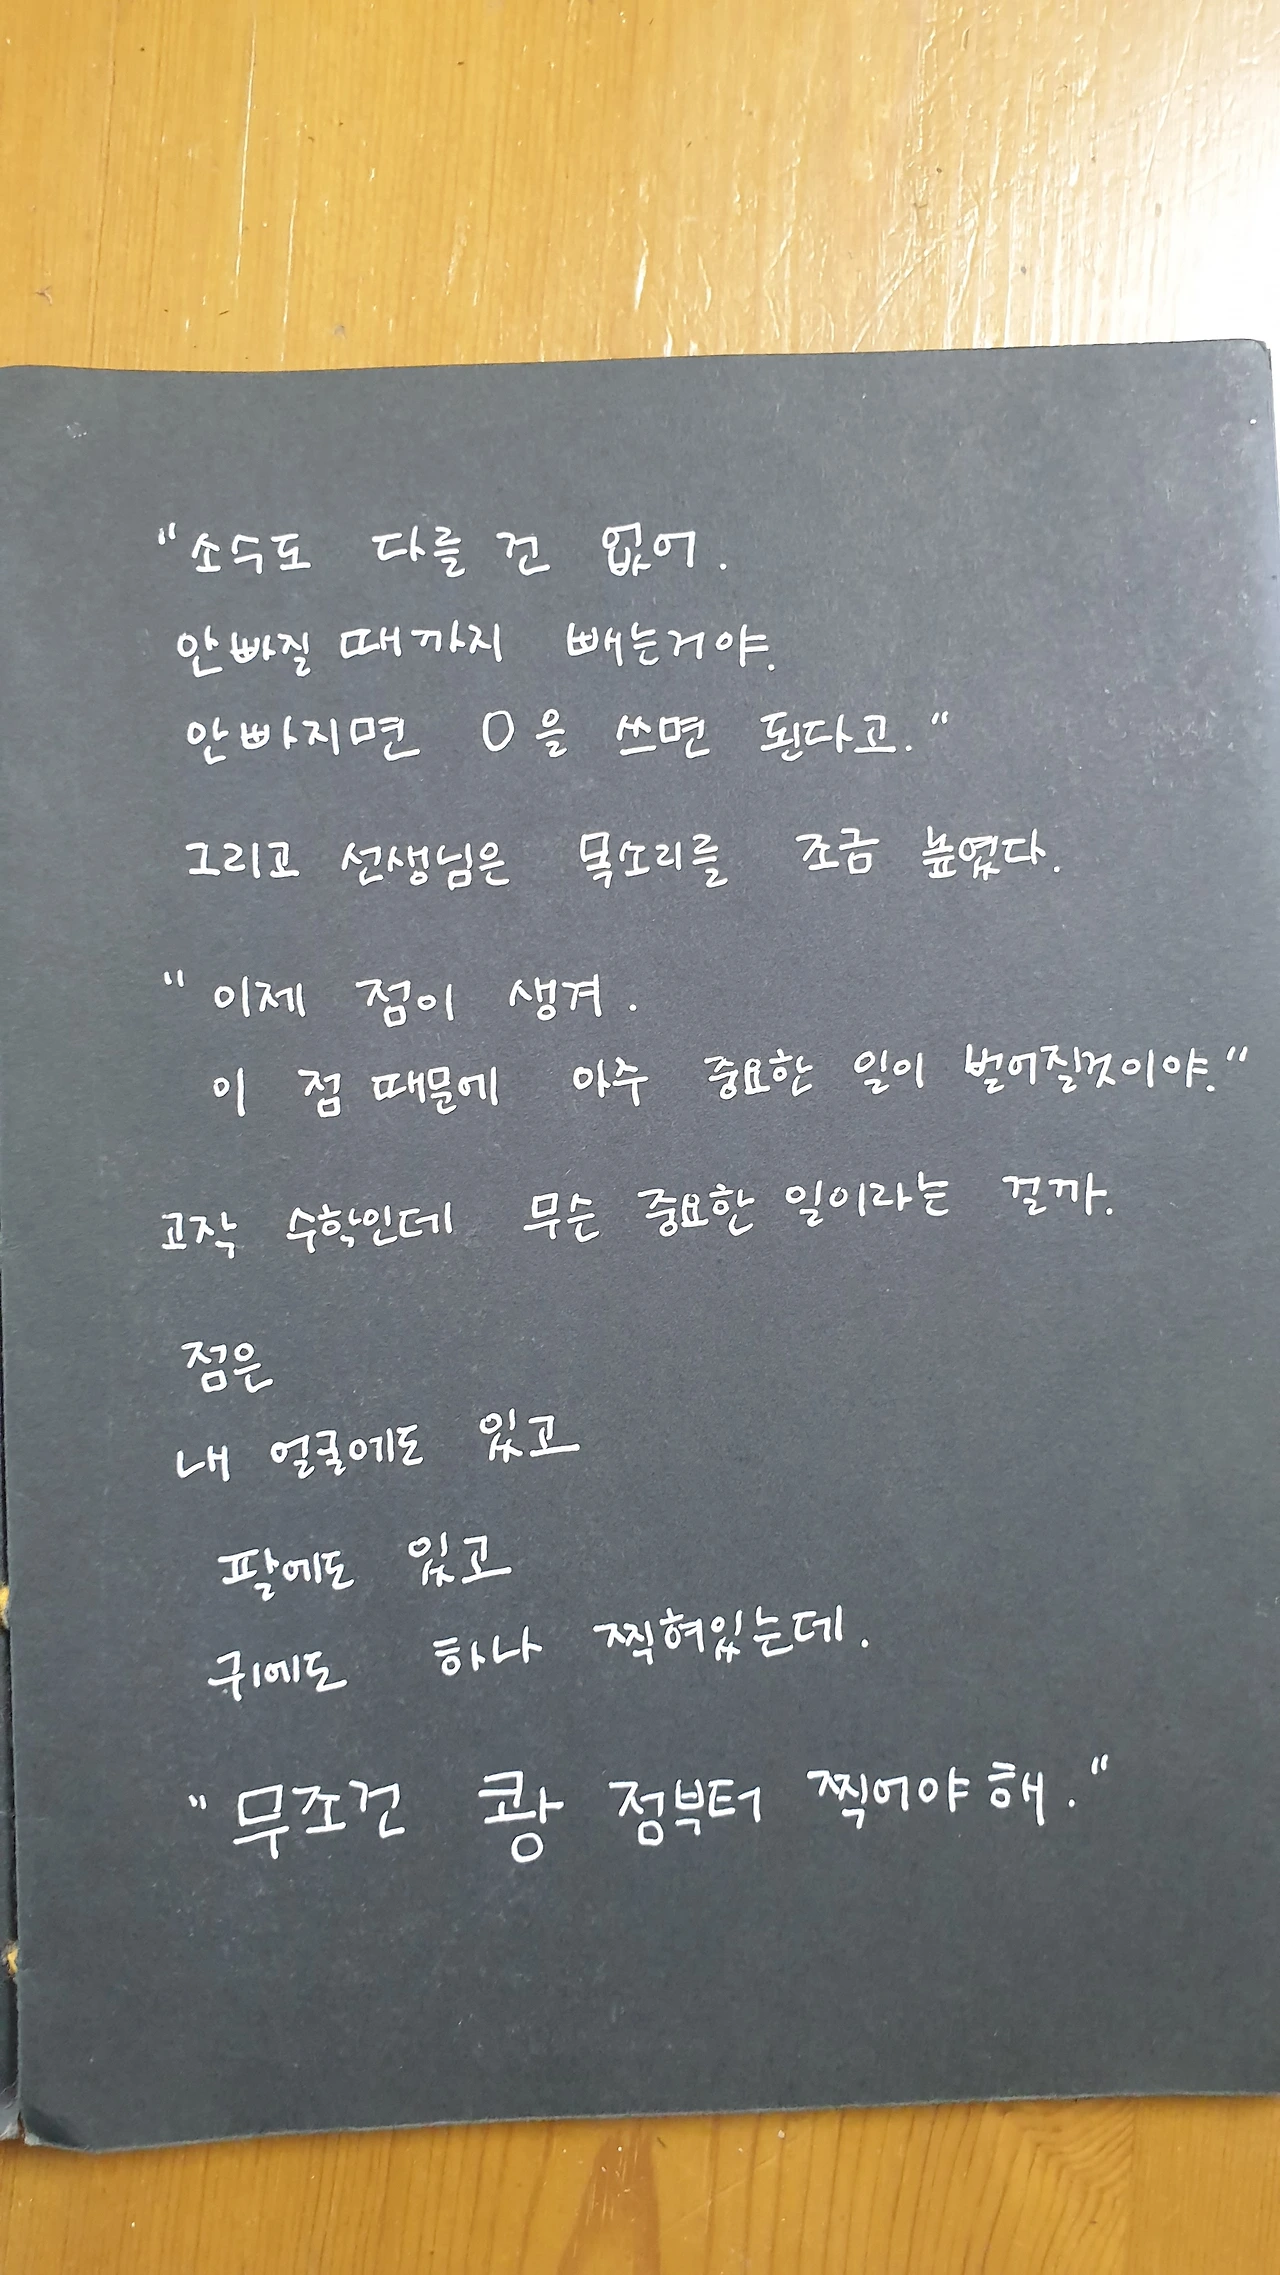 "소수도 다를 건 없어.
안빠질 때까지 빼는거야.
안빠지면 0을 쓰면 된다고."
그리고 선생님은 목소리를 조금 높였다.
"이제 점이 생겨.
이 점 때문에 아주 중요한 일이 벌어질것이야."
고작 수학인데 무슨 중요한 일이라는 걸까.
점은
내 얼굴에도 있고
팔에도 있고
귀에도 하나 찍혀있는데.
"무조건 쾅 점부터 찍어야해."